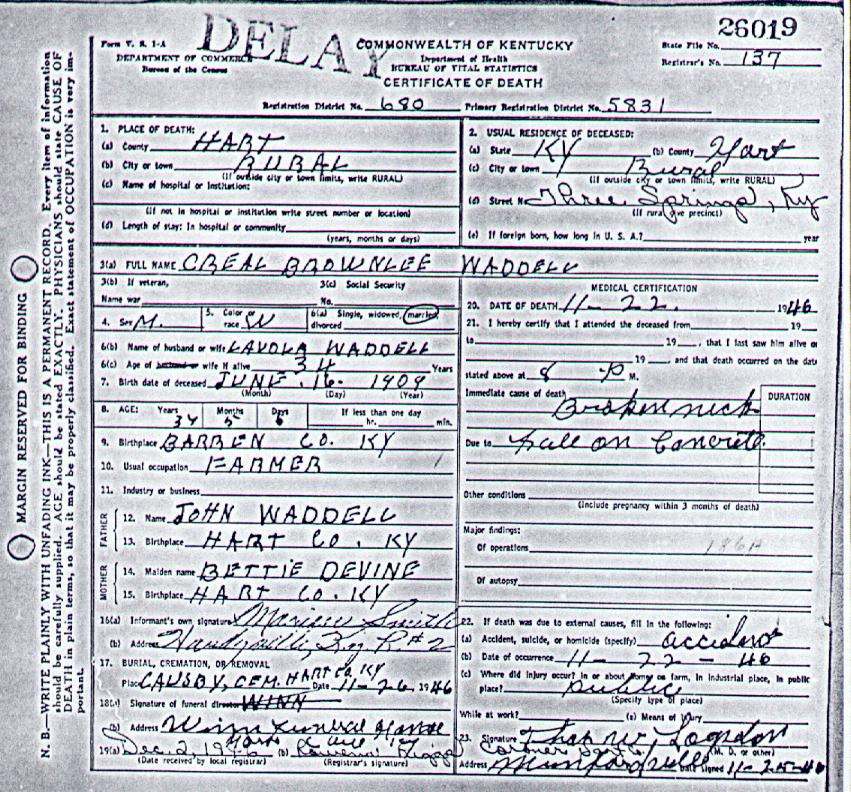 26019
DELAY
Form V. S. 1-A
DEPARTMENT OF COMMERCE
Bureau of the Census
COMMONWEALTH OF KENTUCKY
Department of Health
BUREAU OF VITAL STATISTICS
CERTIFICATE OF DEATH
State File No.
Registrar's No. 137
Registration District No. 680 Primary Registration District No. 5831
MARGIN RESERVED FOR BINDING
N. B.—WRITE PLAINLY WITH UNFADING INK—THIS IS A PERMANENT RECORD. Every item of information
should be carefully supplied. AGE should be stated EXACTLY. PHYSICIANS should state CAUSE OF
DEATH in plain terms, so that it may be properly classified. Exact statement of OCCUPATION is very im-
portant.
1. PLACE OF DEATH:
(a) County HART
(b) City or town RURAL
(If outside city or town limits, write RURAL)
(c) Name of hospital or Institution:
(If not in hospital or institution write street number or location)
(d) Length of stay: In hospital or community
(years, months or days)
2. USUAL RESIDENCE OF DECEASED:
(a) State KY (b) County Hart
(c) City or town Rural
(If outside city or town limits, write RURAL)
(d) Street No. Three Springs, Ky
(If rural give precinct)
(e) If foreign born, how long in U. S. A.? year
3(a) FULL NAME CREAL BROWNLEE WADDELL
3(b) If veteran,
Name war
3(c) Social Security
No.
4. Sex M.
5. Color or
race W
6(a) Single, widowed, married,
divorced
6(b) Name of husband or wife LAVOLA WADDELL
6(c) Age of husband or wife if alive 34 Years
7. Birth date of deceased JUNE. 16- 1909
(Month) (Day) (Year)
8. AGE: Years Months Days If less than one day
5 6 hr. min.
9. Birthplace BARREN CO. KY
10. Usual occupation FARMER
11. Industry or business
FATHER
12. Name JOHN WADDELL
13. Birthplace HART CO. KY
MOTHER
14. Maiden name BETTIE DEVINE
15. Birthplace HART CO. KY
16(a) Informant's own signature Smith
(b) Address Ky R#2
17. BURIAL, CREMATION, OR REMOVAL
Place CAUSBY, CEM. HART CO. KY Date 11-26, 1946
18(a) Signature of funeral director WINN
(b) Address Winn Funeral Home
19(a) Dec. 2, (b)
(Date received by local registrar) (Registrar's signature)
MEDICAL CERTIFICATION
20. DATE OF DEATH 11-22. 1946
21. I hereby certify that I attended the deceased from 19
to 19 , that I last saw him alive on
19 and that death occurred on the date
stated above at 8 P M.
Immediate cause of death DURATION
Broken neck
Due to Fall on Concrete
Other conditions
(Include pregnancy within 3 months of death)
Major findings:
Of operations
Of autopsy
22. If death was due to external causes, fill in the following:
(a) Accident, suicide, or homicide (specify) accident
(b) Date of occurrence 11-22-46
(c) Where did injury occur? In or about home on farm, in industrial place, in public
place? public
(Specify type of place)
While at work? (e) Means of injury
23. Signature Logsdon
(M. D. or other)
Address Munfordville Date signed 11-25-46